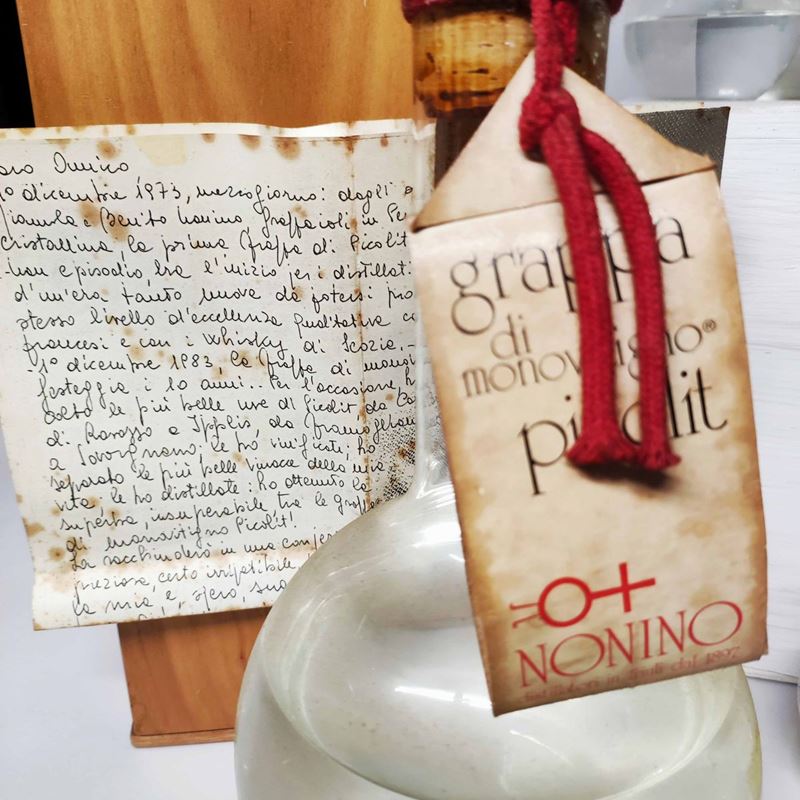 Amico
1° dicembre 1973, mezzogiorno: dagli
e Benito Nonino grappaioli in
cristallina, la prima Grappa di Picolit
episodio, ma l'inizio per i distillat
d'un'era tanto nuova da potersi
stesso livello d'eccellenza qualitativa
francesi e con i Whisky di Scozia.-
1° dicembre 1983, la Grappa di
festeggia i 10 anni.. Per l'occasione, h
colto le più belle uve di Picolit, da
di Rosazzo a Ipplis, da
a Savorgnano; le ho vinificate; ho
separato le più belle vinacce della mia
vita; le ho distillate: ho ottenuto la
superba, insuperabile, tra le Grappe
di monovitigno Picolit!
La racchiuderò in una
preziosa, certo irripetibile
la mia e, spero, sua
grappa
di
monovitigno®
picolit
NONINO
distillatori in friuli dal 1897